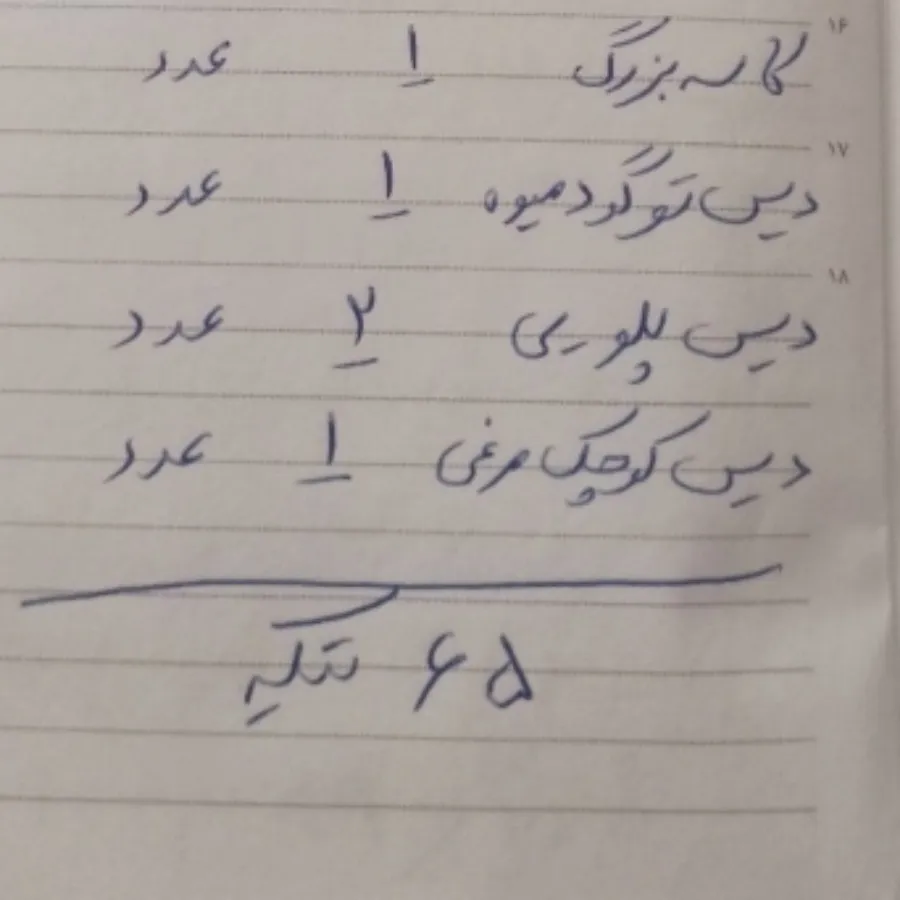 ۱۶
کاسه بزرگ ۱ عدد
۱۷
دیس توگود میوه ۱ عدد
۱۸
دیس پلویی ۲ عدد
دیس کوچک مرغی ۱ عدد
۶۵ تکه